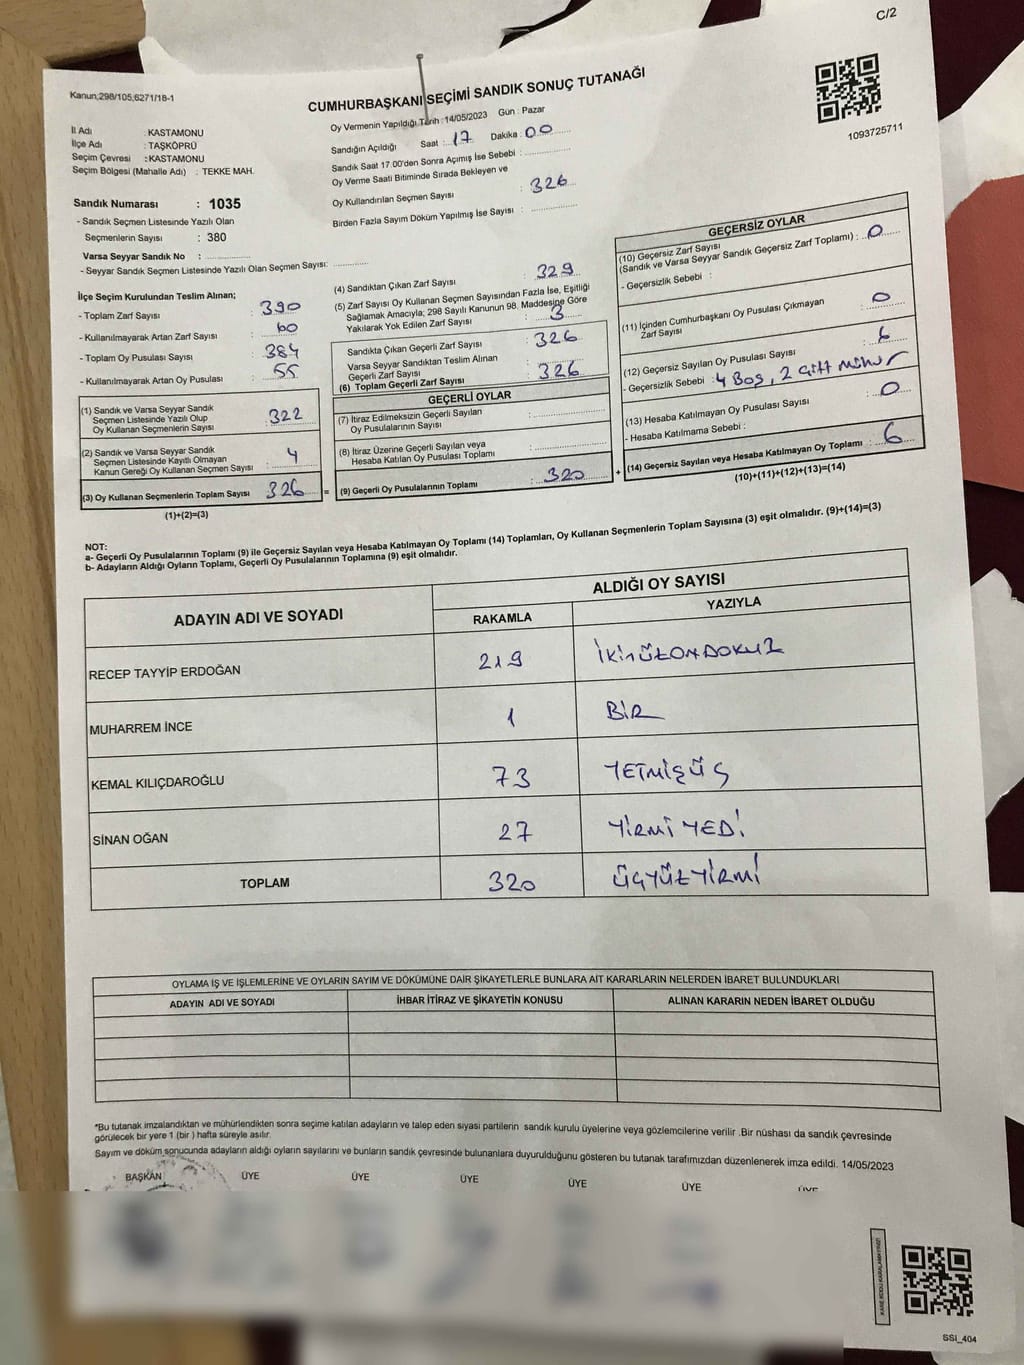 C/2
Kanun;298/105;6271/18-1
CUMHURBAŞKANI SEÇİMİ SANDIK SONUÇ TUTANAĞI
1093725711
İl Adı : KASTAMONU
İlçe Adı : TAŞKÖPRÜ
Seçim Çevresi : KASTAMONU
Seçim Bölgesi (Mahalle Adı) : TEKKE MAH.
Sandık Numarası : 1035
- Sandık Seçmen Listesinde Yazılı Olan
Seçmenlerin Sayısı : 380
Varsa Seyyar Sandık No :
- Seyyar Sandık Seçmen Listesinde Yazılı Olan Seçmen Sayısı:
Oy Vermenin Yapıldığı Tarih :14/05/2023 Gün : Pazar
Sandığın Açıldığı Saat : 17 Dakika : 00
Sandık Saat 17.00'den Sonra Açımış İse Sebebi :
Oy Verme Saati Bitiminde Sırada Bekleyen ve
Oy Kullandırılan Seçmen Sayısı : 326
Birden Fazla Sayım Döküm Yapılmış İse Sayısı :
İlçe Seçim Kurulundan Teslim Alınan;
- Toplam Zarf Sayısı : 390
- Kullanılmayarak Artan Zarf Sayısı : 60
- Toplam Oy Pusulası Sayısı : 384
- Kullanılmayarak Artan Oy Pusulası : 55
(1) Sandık ve Varsa Seyyar Sandık
Seçmen Listesinde Yazılı Olup
Oy Kullanan Seçmenlerin Sayısı : 322
(2) Sandık ve Varsa Seyyar Sandık
Seçmen Listesinde Kayıtlı Olmayan
Kanun Gereği Oy Kullanan Seçmen Sayısı : 4
(3) Oy Kullanan Seçmenlerin Toplam Sayısı 326
(1)+(2)=(3)
(4) Sandıktan Çıkan Zarf Sayısı : 329
(5) Zarf Sayısı Oy Kullanan Seçmen Sayısından Fazla İse, Eşitliği
Sağlamak Amacıyla; 298 Sayılı Kanunun 98. Maddesine Göre
Yakılarak Yok Edilen Zarf Sayısı : 3
Sandıkta Çıkan Geçerli Zarf Sayısı : 326
Varsa Seyyar Sandıktan Teslim Alınan
Geçerli Zarf Sayısı
(6) Toplam Geçerli Zarf Sayısı : 326
GEÇERLİ OYLAR
(7) İtiraz Edilmeksizin Geçerli Sayılan
Oy Pusulalarının Sayısı :
(8) İtiraz Üzerine Geçerli Sayılan veya
Hesaba Katılan Oy Pusulası Toplamı :
= (9) Geçerli Oy Pusulalarının Toplamı : 320 +
GEÇERSİZ OYLAR
(10) Geçersiz Zarf Sayısı
(Sandık ve Varsa Seyyar Sandık Geçersiz Zarf Toplamı) : 0
- Geçersizlik Sebebi :
(11) İçinden Cumhurbaşkanı Oy Pusulası Çıkmayan
Zarf Sayısı : 0
(12) Geçersiz Sayılan Oy Pusulası Sayısı : 6
- Geçersizlik Sebebi : 4 Boş, 2 Çift Mühür
(13) Hesaba Katılmayan Oy Pusulası Sayısı : 0
- Hesaba Katılmama Sebebi :
(14) Geçersiz Sayılan veya Hesaba Katılmayan Oy Toplamı : 6
(10)+(11)+(12)+(13)=(14)
NOT:
a- Geçerli Oy Pusulalarının Toplamı (9) ile Geçersiz Sayılan veya Hesaba Katılmayan Oy Toplamı (14) Toplamları, Oy Kullanan Seçmenlerin Toplam Sayısına (3) eşit olmalıdır. (9)+(14)=(3)
b- Adayların Aldığı Oyların Toplamı, Geçerli Oy Pusulalarının Toplamına (9) eşit olmalıdır.
ADAYIN ADI VE SOYADI ALDIĞI OY SAYISI
RAKAMLA YAZIYLA
RECEP TAYYİP ERDOĞAN 219 İKİYÜZONDOKUZ
MUHARREM İNCE 1 BİR
KEMAL KILIÇDAROĞLU 73 YETMİŞÜÇ
SİNAN OĞAN 27 YİRMİYEDİ
TOPLAM 320 ÜÇYÜZYİRMİ
OYLAMA İŞ VE İŞLEMLERİNE VE OYLARIN SAYIM VE DÖKÜMÜNE DAİR ŞİKAYETLERLE BUNLARA AİT KARARLARIN NELERDEN İBARET BULUNDUKLARI
ADAYIN ADI VE SOYADI İHBAR İTİRAZ VE ŞİKAYETİN KONUSU ALINAN KARARIN NEDEN İBARET OLDUĞU
*Bu tutanak imzalandıktan ve mühürlendikten sonra seçime katılan adayların ve talep eden siyasi partilerin sandık kurulu üyelerine veya gözlemcilerine verilir .Bir nüshası da sandık çevresinde
görülecek bir yere 1 (bir ) hafta süreyle asılır.
Sayım ve döküm sonucunda adayların aldığı oyların sayılarını ve bunların sandık çevresinde bulunanlara duyurulduğunu gösteren bu tutanak tarafımızdan düzenlenerek imza edildi. 14/05/2023
BAŞKAN ÜYE ÜYE ÜYE ÜYE ÜYE ÜYE
KARE KODU KARALAMAYINIZ!
SSI_404